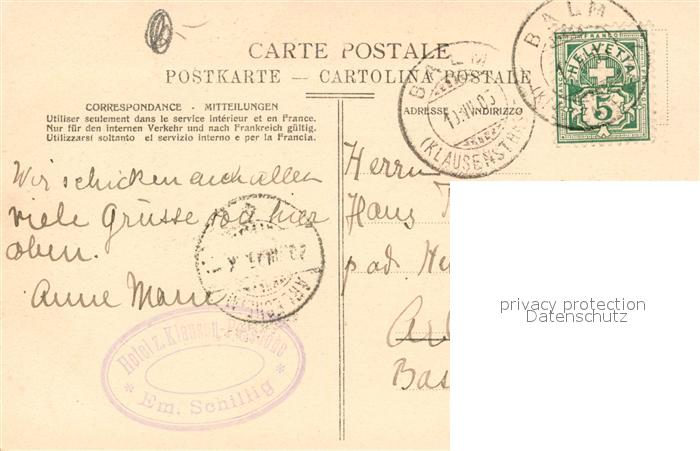 CARTE POSTALE
POSTKARTE — CARTOLINA POSTALE
CORRESPONDANCE - MITTEILUNGEN
Utiliser seulement dans le service intérieur et en France.
Nur für den internen Verkehr und nach Frankreich gültig.
Utilizzarsi soltanto el servizio interno e per la Francia.
ADRESSE INDIRIZZO
BALM
(KLAUSENSTR
BALM
FRANCO
HELVETIA
5
Wir schicken euch allen
viele Grüsse von hier
oben.
Anne Marie
Hotel z. Klausen-Passhöhe
* Em. Schillig *
Herrn
Hans
pad.
Bas
privacy protection
Datenschutz